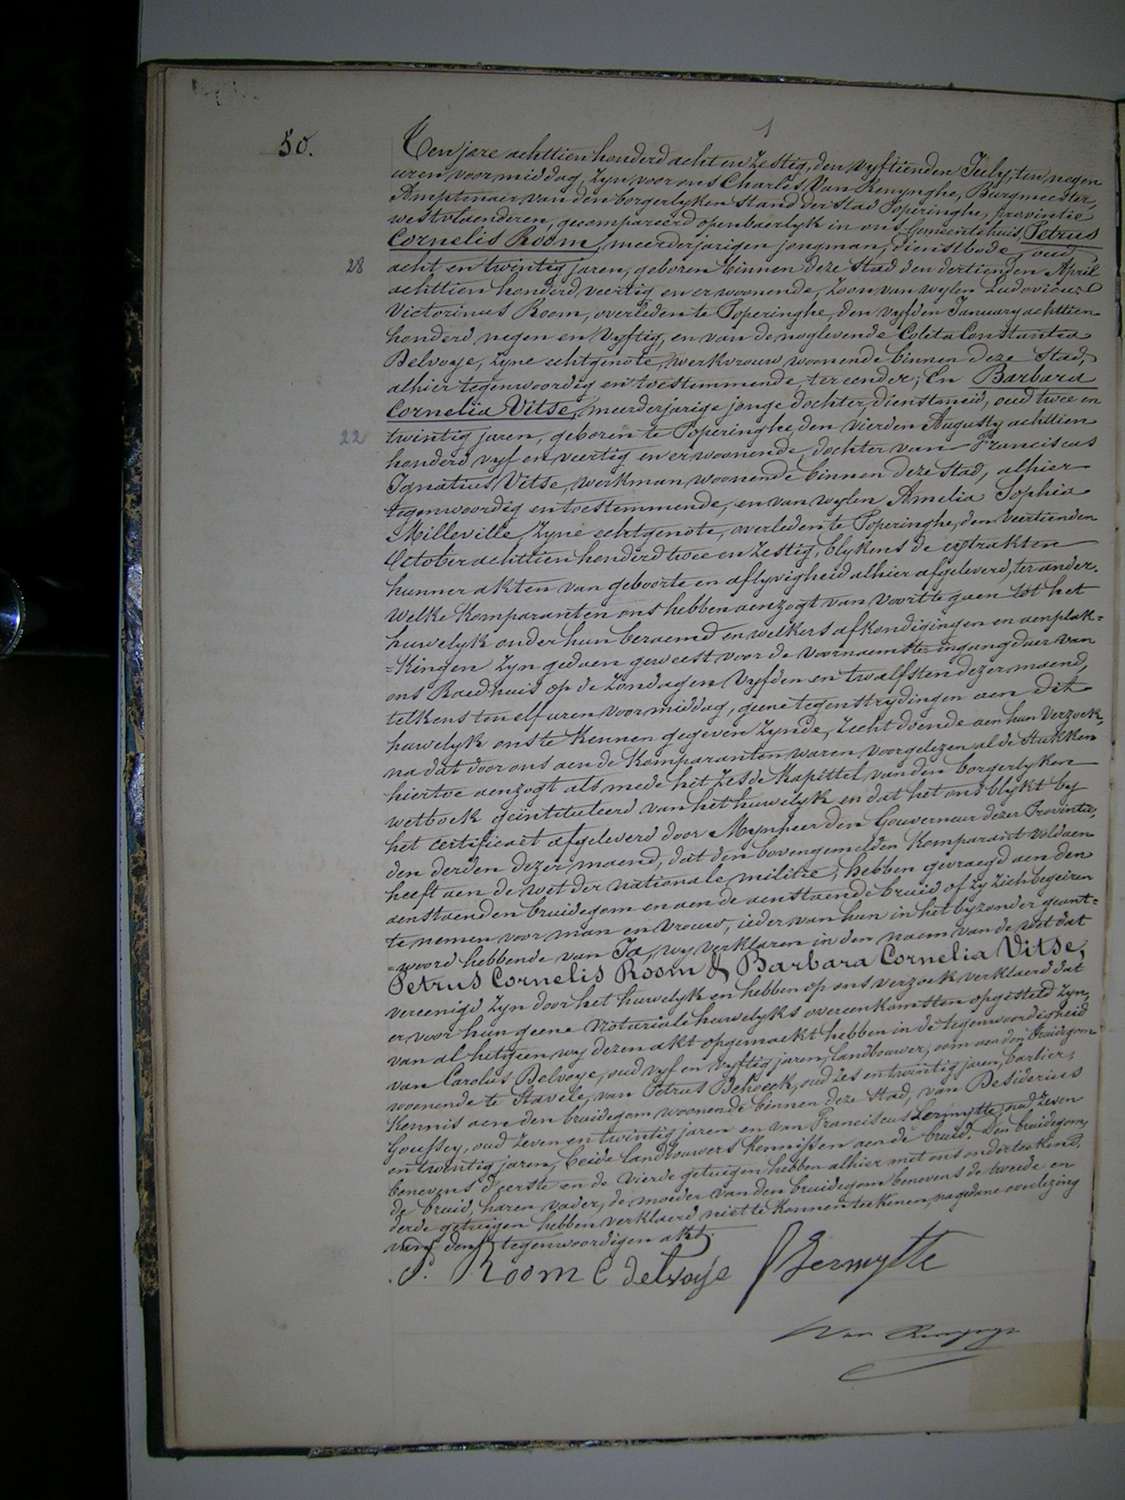 50.
Ten jare achttien honderd acht en zestig, den vyftienden July, ten negen
uren voormiddag, zyn voor ons Charles Van Renynghe, Burgmeester,
Amptenaer van den borgerlyken stand der Stad Poperinghe, provintie
westvlaenderen, gecompareerd openbaerlyk in ons Gemeentehuis, Petrus
Cornelis Room, meerderjarigen jongman, dienstbode, oud
28 acht en twintig jaren, geboren binnen deze Stad den dertienden April
achttien honderd veertig en er woonende, zoon van wylen Ludovicus
Victorinus Room, overleden te Poperinghe, den vyfden January achttien
honderd negen en vyftig, en van de noglevende Colita Constantia
Delvoye, zyne echtgenote, werkvrouw, woonende binnen deze Stad,
alhier tegenwoordig en toestemmende, ter eender; En Barbara
Cornelia Vitse, meerderjarige jonge dochter, dienstmeid, oud twee en
22 twintig jaren, geboren te Poperinghe, den vierden Augusty achttien
honderd vyf en veertig en er woonende, dochter van Franciscus
Ignatius Vitse, werkman, woonende binnen deze Stad, alhier
tegenwoordig en toestemmende, en van wylen Amelia Sophia
Milleville, zyne echtgenote, overleden te Poperinghe, den veertienden
October achttien honderd twee en zestig, blykens de extrakten
hunner akten van geboorte en aflyvigheid alhier afgeleverd, ter ander.
Welke Komparanten ons hebben aenzogt van voort te gaen tot het
huwelyk onder hun beraemd en welkers afkondigingen en aenplak=
=kingen zyn gedaen geweest voor de voornaemste ingangdeur van
ons Raedhuis op de Zondagen vyfden en twaelfsten dezer maend,
telkens ten elf uren voormiddag, geene tegenstrydingen aen dit
huwelyk ons te kennen gegeven zynde, recht doende aen hun verzoek,
na dat door ons aen de Komparanten waren voorgelezen al de stukken
hiertoe aenzogt als mede het zesde Kapittel van den borgerlyken
wetboek geïntituleerd van het huwelyk en dat het ons blykt by
het certificaet afgeleverd door Mynheer den Gouverneur dezer Provintie,
den derden dezer maend, dat den bovengemelden Komparant voldaen
heeft aen de wet der nationale militie, hebben gevraegd aen den
aenstaenden bruidegom en aen de aenstaende bruid of zy zich begeiren
te nemen voor man en vrouw, ieder van hun in het byzonder geant=
=woord hebbende van Ja, wy verklaren in den naem van de wet dat
Petrus Cornelis Room & Barbara Cornelia Vitse,
vereenigd zyn door het huwelyk en hebben op ons verzoek verklaerd dat
er voor hun geene Notariale huwelyks overeenkomsten opgesteld zyn,
van al hetgeen wy dezen akt opgemaekt hebben in de tegenwoordigheid
van Carolus Delvoye, oud vyf en vyftig jaren, landbouwer, oom aen den bruidegom
woonende te Stavele, van Petrus Behaeck, oud zes en twintig jaren, barbier,
Kennis aen den bruidegom, woonende binnen deze Stad, van Desiderius
Gouffey, oud zeven en twintig jaren en van Franciscus Lermytte, oud zeven
en twintig jaren, beide landbouwers Kennissen aen de bruid. Den bruidegom,
benevens d'eerste en de vierde getuigen hebben alhier met ons onderteekend,
de bruid, haren vader, de moeder van den bruidegom benevens de tweede en
derde getuigen hebben verklaerd niet te konnen teekenen, na gedane voorlezing
van den tegenwoordigen akt.
P. Room C delvoye F Lermytte
Van Renynghe